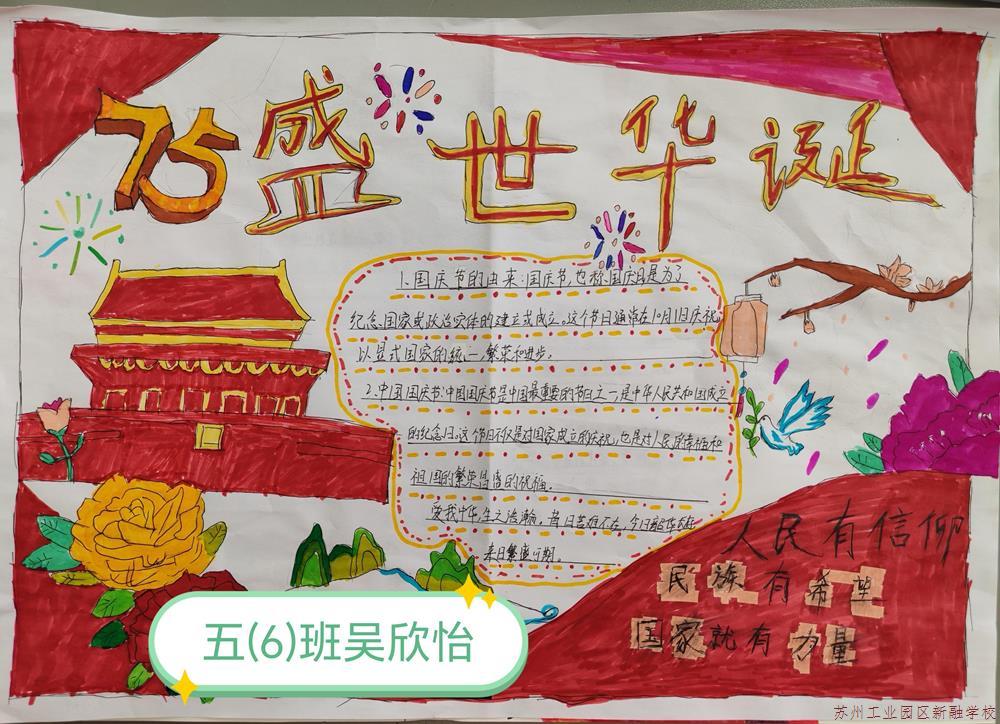 75盛世华诞
1.国庆节的由来:国庆节,也称国庆日是为了
纪念国家或政治实体的建立或成立。这个节日通常在10月1日庆祝,
以显式国家的统一繁荣和进步。
2.中国国庆节:中国国庆节是中国最重要的节日之一是中华人民共和国成立
的纪念日。这个节日不仅是对国家成立的庆祝,也是对人民的幸福和
祖国的繁荣昌盛的祝福。
爱我中华,生之浩瀚。昔日苦难不在,今日
来日繁盛可期。
人民有信仰
民族有希望
国家就有力量
五(6)班吴欣怡
苏州工业园区新融学校